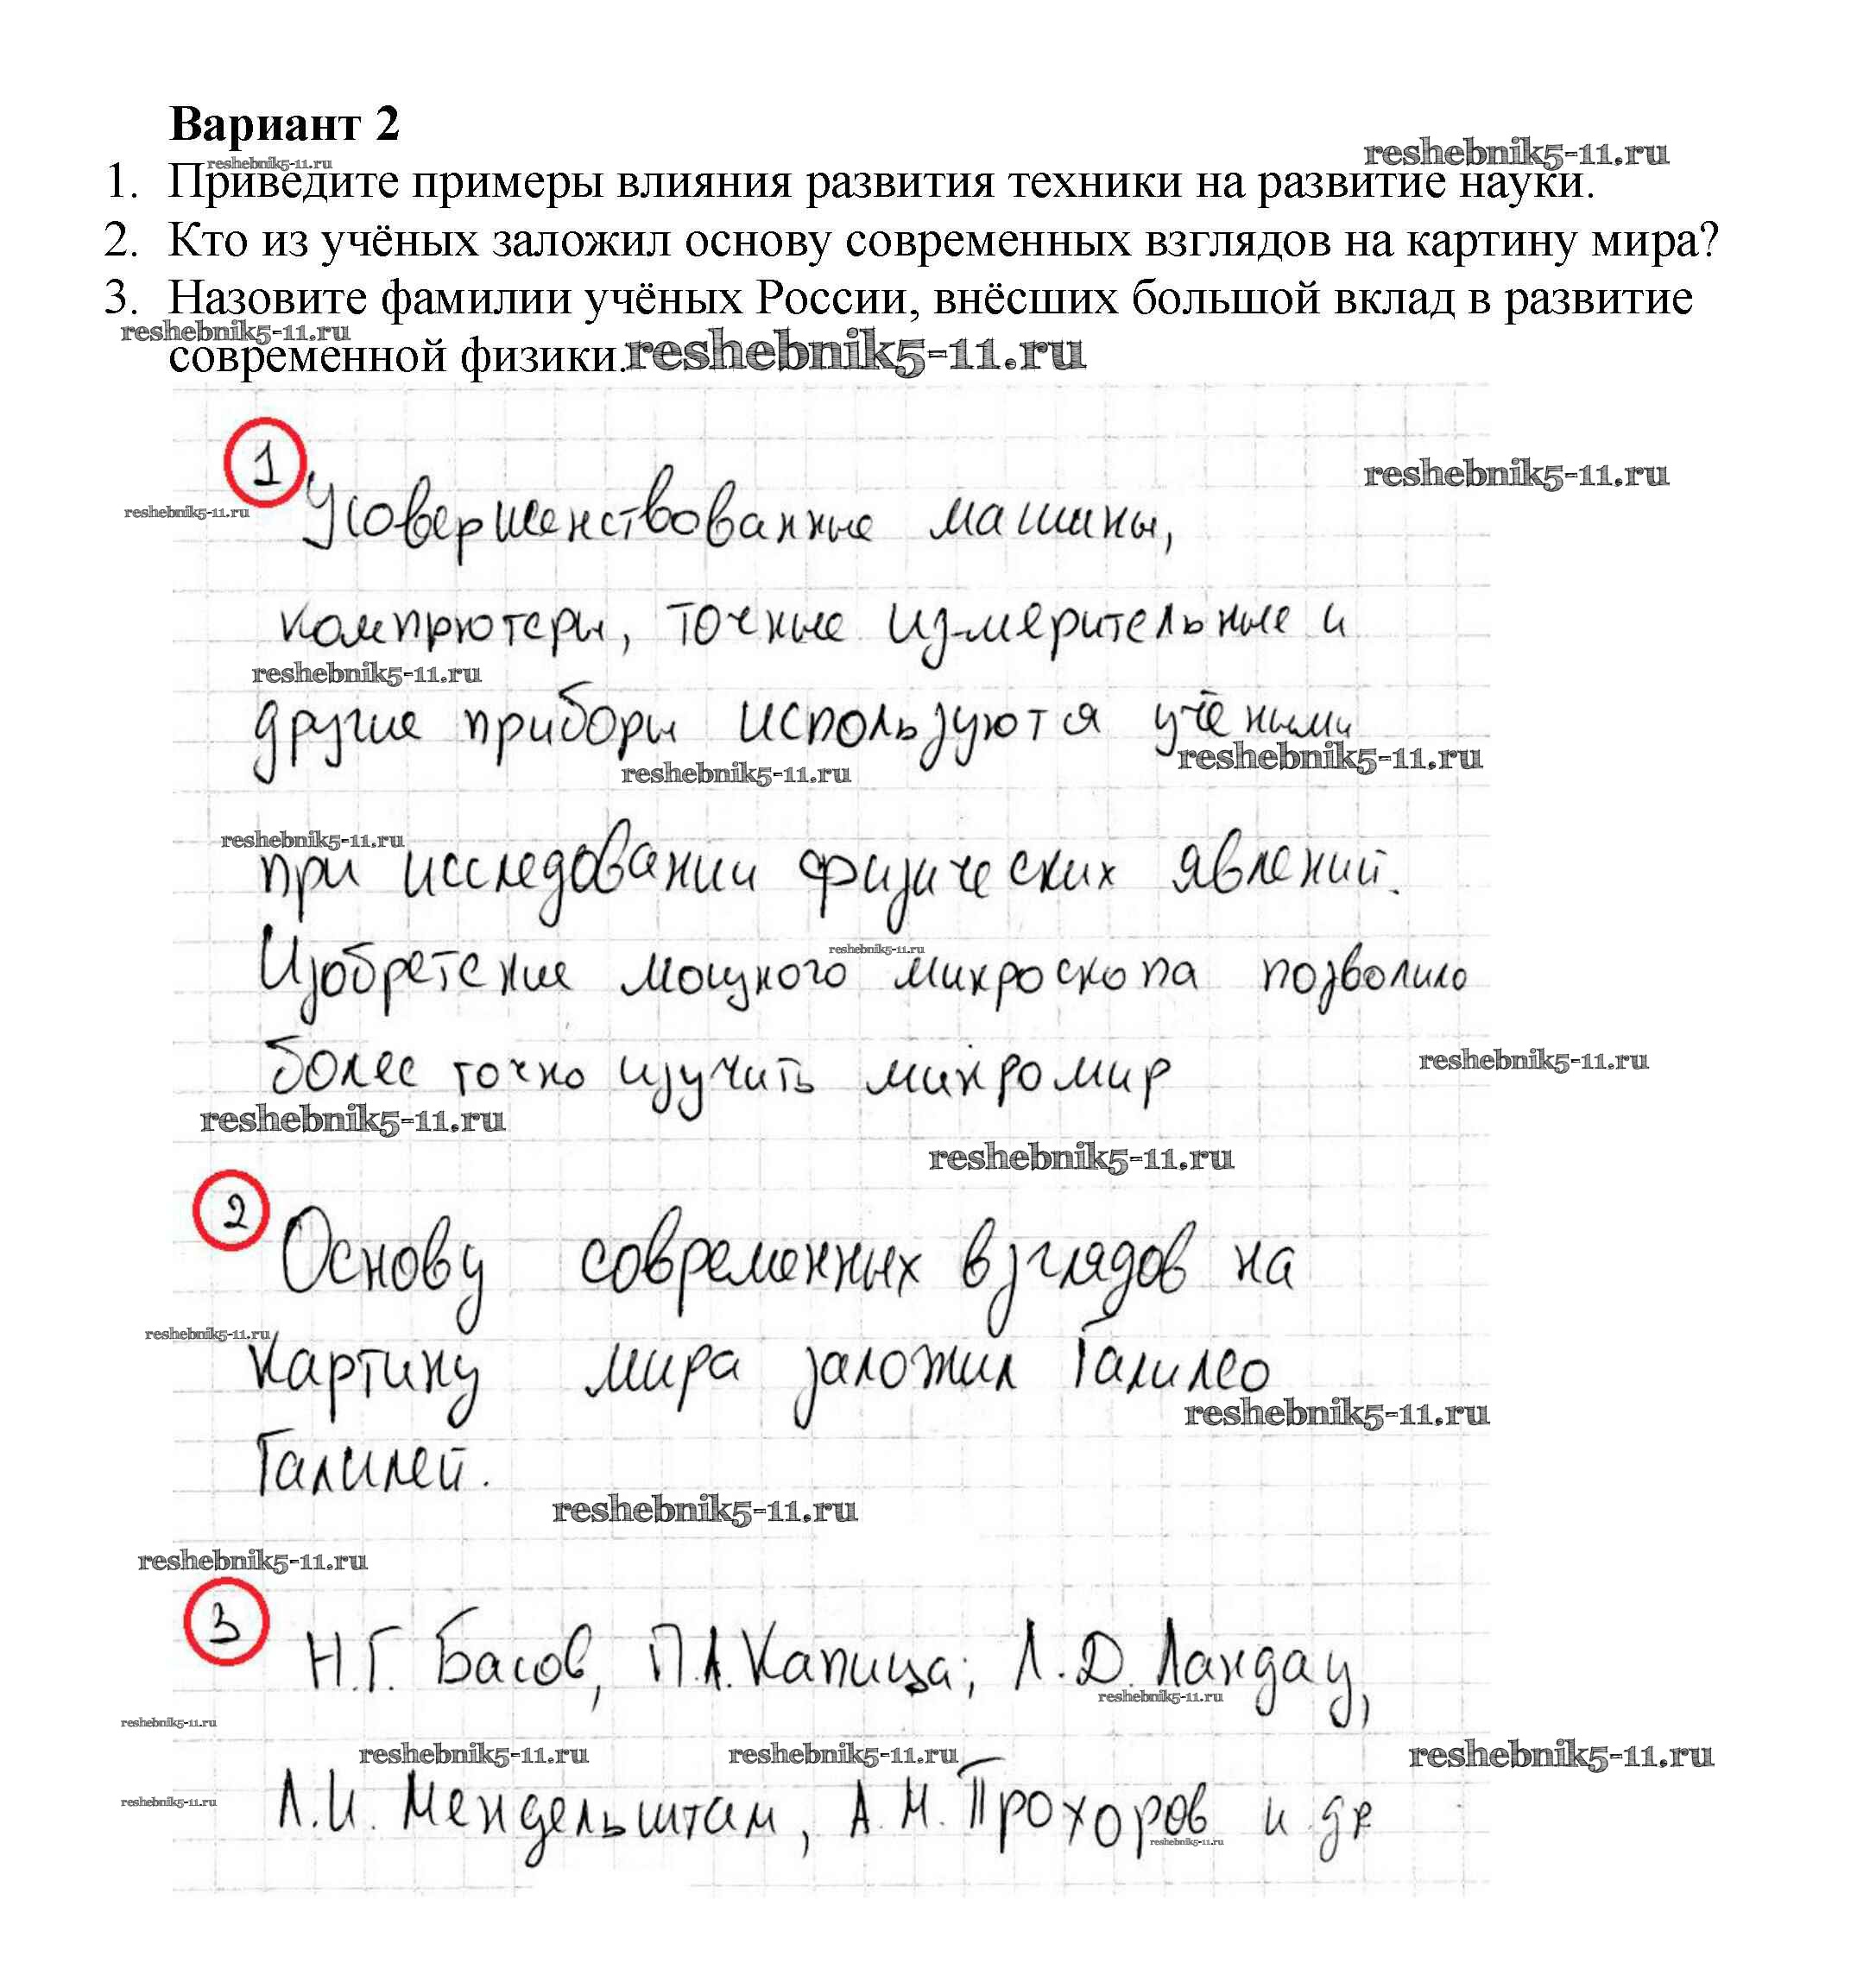 Вариант 2
reshebnik5-11.ru
reshebnik5-11.ru
1. Приведите примеры влияния развития техники на развитие науки.
2. Кто из учёных заложил основу современных взглядов на картину мира?
3. Назовите фамилии учёных России, внёсших большой вклад в развитие
reshebnik5-11.ru
современной физики.reshebnik5-11.ru
1
reshebnik5-11.ru
reshebnik5-11.ru
Усовершенствованные машины,
компрютеры, точные измерительные и
reshebnik5-11.ru
другие приборы используются учёными
reshebnik5-11.ru
reshebnik5-11.ru
reshebnik5-11.ru
при исследовании физических явлений.
reshebnik5-11.ru
Изобретение мощного микроскопа позволило
более точно изучить микромир
reshebnik5-11.ru
reshebnik5-11.ru
reshebnik5-11.ru
2
Основу современных взглядов на
reshebnik5-11.ru
картину мира заложил Галилео
reshebnik5-11.ru
Галилей.
reshebnik5-11.ru
reshebnik5-11.ru
3
Н.Г. Басов, П.Л. Капица; Л.Д. Ландау,
reshebnik5-11.ru
reshebnik5-11.ru
reshebnik5-11.ru reshebnik5-11.ru reshebnik5-11.ru
reshebnik5-11.ru
Л.И. Мендельштам, А.М. Прохоров и др
reshebnik5-11.ru